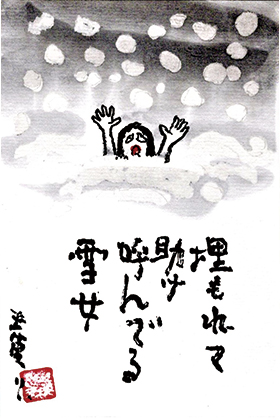 埋もれて
助け
呼んでる
雪女